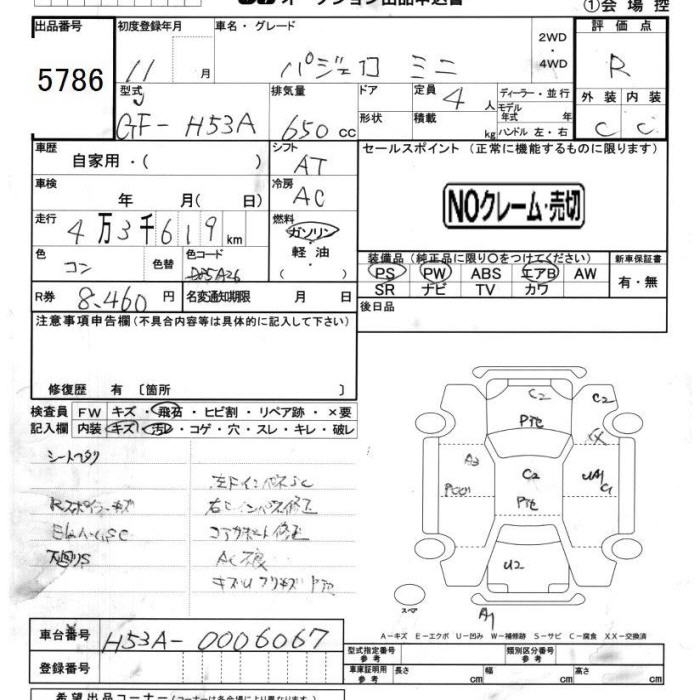 オークション出品申込書
①会場控
出品番号 初度登録年月 車名・グレード 2WD ・ 4WD 評価点
5786 11 月 パジェロ ミニ R
型式 排気量 ドア 定員 4 人 ディーラー・並行 外装 内装
GF-H53A 650 cc 形状 積載 kg モデル年式 年 ハンドル 左・右 C C
車歴 自家用・( ) シフト AT セールスポイント (正常に機能するものに限ります)
車検 年 月( 日) 冷房 AC NOクレーム・売切
走行 4万3千619 km 燃料 ガソリン・軽油・( )
色 コン 色替 色コード 装備品(純正品に限り○をつけてください) 新車保証書
PS PW ABS エアB AW 有・無
SR ナビ TV カワ
R券 8,460 円 名変通知期限 月 日 後日品
注意事項申告欄(不具合内容等は具体的に記入して下さい)
修復歴 有〔箇所 〕
検査員 FW キズ・飛石・ヒビ割・リペア跡・×要
記入欄 内装 キズ・汚レ・コゲ・穴・スレ・キレ・破レ
シートヘタリ
左FインパネSC
Rスポイラーキズ 右Fインパネ修正
コアサポート修正
下廻りS AC不良
C2 C2
Pて
A2 C2 UA1 C1
Pて
U2
スペア A1
A−キズ E−エクボ U−凹み W−補修跡 S−サビ C−腐食 XX−交換済
車台番号 H53A-0006067
型式指定番号 参考 類別区分番号 参考
登録番号 車庫証明用 参考 長さ cm 幅 cm 高さ cm
希望出品コーナー(コーナーは各会場により異なります)